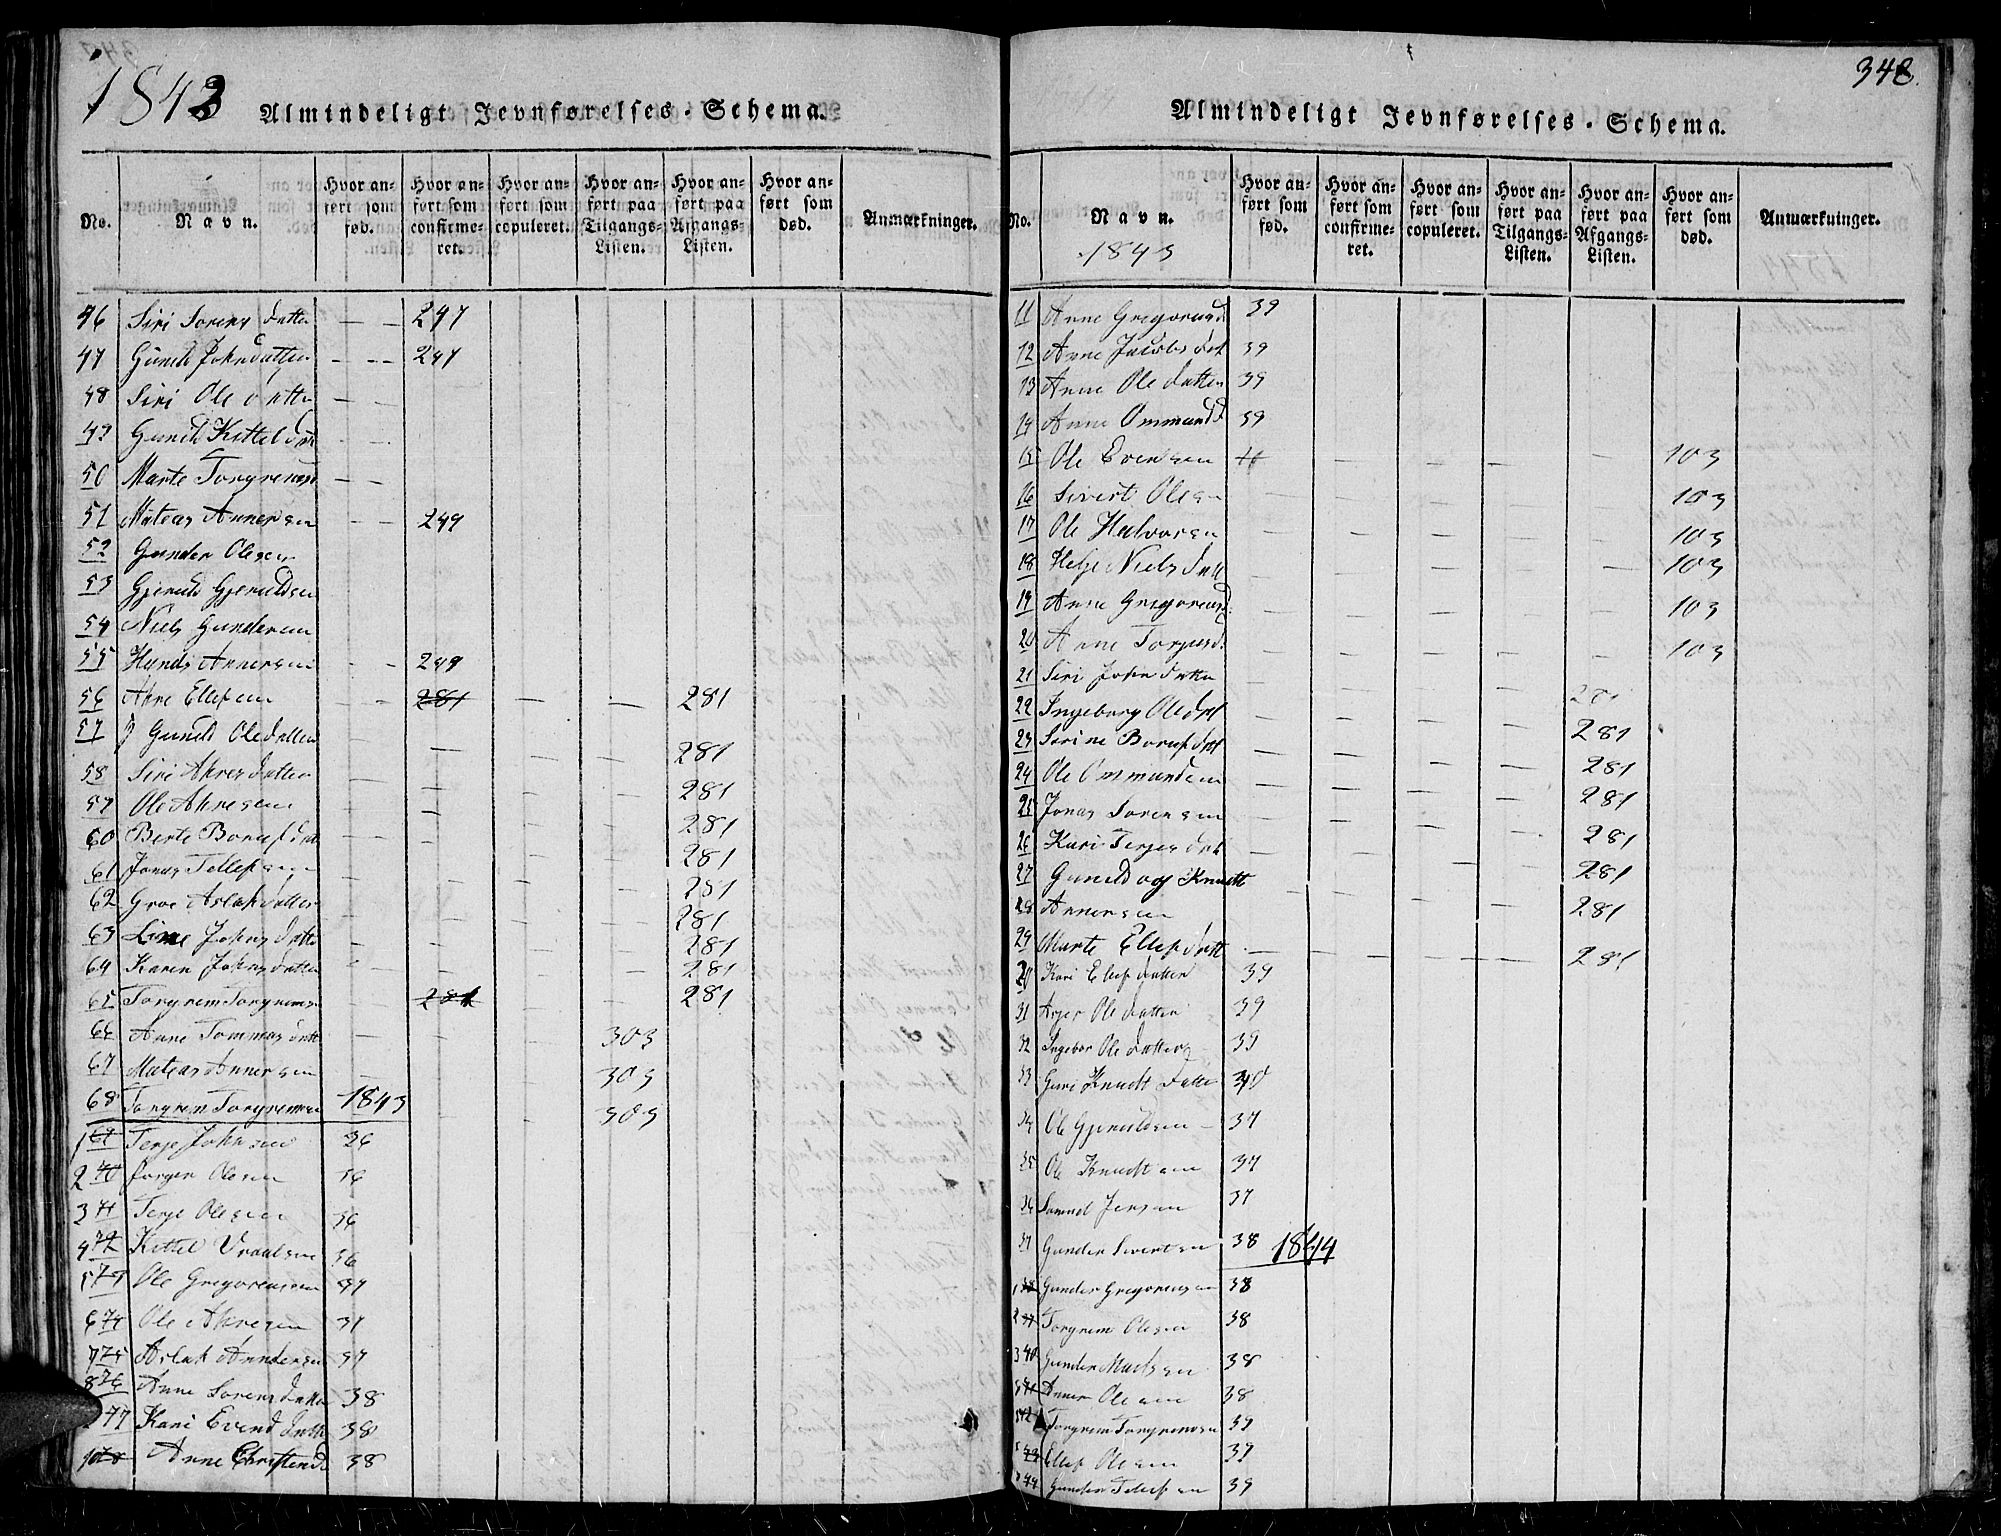 1843 Almindeligt Jevnførelses-Schema.
No. Navn. Hvor anført som fød. Hvor anført som confirmeret. Hvor anført som copuleret. Hvor anført paa Tilgangs-Listen. Hvor anført paa Afgangs-Listen. Hvor anført som død. Anmærkninger.
46 Siri Sorens datter — — 247
47 Gunild Johnsdatter — — 247
48 Siri Ole datter — —
49 Gunild Kittel dat — —
50 Marte Torgremsd — —
51 Mateas Annersen — — 249
52 Gunder Olesen
53 Gjeruld Gjeruldsen
54 Niels Gundersen
55 Annersen — — 249
56 Ahre Ellefsen — — 281 — — 281
57 Gunild Oledatter — — — — 281
58 Siri Ahresdatter — — — — 281
59 Ole Ahresen — — — — 281
60 Berte Borufsdat — — — — 281
61 Jonas Tellefsen — — — — 281
62 Groe Aslakdatter — — — — 281
63 Line Johnsdatte — — — — 281
64 Karen Johnsdatter — — — — 281
65 Torgrem Torgremsen 281 — — 281
66 Anne Tommasdatt — — — 303
67 Mateas Annersen — — — 303
68 Torgrem Torgremsen 1843 — — 303
1 69 Terje Johnsen 36
2 70 Jorgen Olesen 36
3 71 Terje Olesen 36
4 72 Kittel Vraalsen 36
5 73 Ole Gregorensen 37
6 74 Ole Ahresen 37
7 75 Aslak Andersen 37
8 76 Anne Sorensdatter 38
77 Kari Evend datter 38
10 78 Anne Christend 38
348.
Almindeligt Jevnførelses-Schema.
No. Navn. Hvor anført som fød. Hvor anført som confirmeret. Hvor anført som copuleret. Hvor anført paa Tilgangs-Listen. Hvor anført paa Afgangs-Listen. Hvor anført som død. Anmærkninger.
1843
11 Anne Gregorensd 39
12 Anne Jacobs dat 39
13 Anne Ole datter 39
14 Anne Ommundsd 39
15 Ole Evensen — — — — 103
16 Sivert Olesen — — — — — 103
17 Ole Halvorsen — — — — — 103
18 Helje Niels datt — — — — — 103
19 Anne Gregorensd — — — — — 103
20 Anne Torjusd. — — — — — 103
21 Siri John datter — — — — 281
22 Ingeborg Ole dat — — — — 281
23 Serine Boruf datt — — — — 281
24 Ole Ommundsen — — — — 281
25 Jonas Sorensen — — — — 281
26 Kari Terjes dat — — — — 281
27 Gunild og Knudt
28 Annersen — — — — 281
29 Marte Ellefs datt — — — — 281
30 Kari Ellefs datter 39
31 Ole datter 39
32 Ingebor Ole datter 39
33 Guri Knudt datte 40
34 Ole Gjeruldsen 37
35 Ole Knudtsen 37
36 Samuel Jensen 37
37 Gunder Sivertsen 38 1844
1 38 Gunder Gregorensen 38
2 39 Torgrem Olesen 38
3 40 Gunder Madsen 38
4 41 Anner Olesen 38
5 42 Torgrem Torgremsen 39
43 Ellef Olesen 39
44 Gunder Tellefsen 39